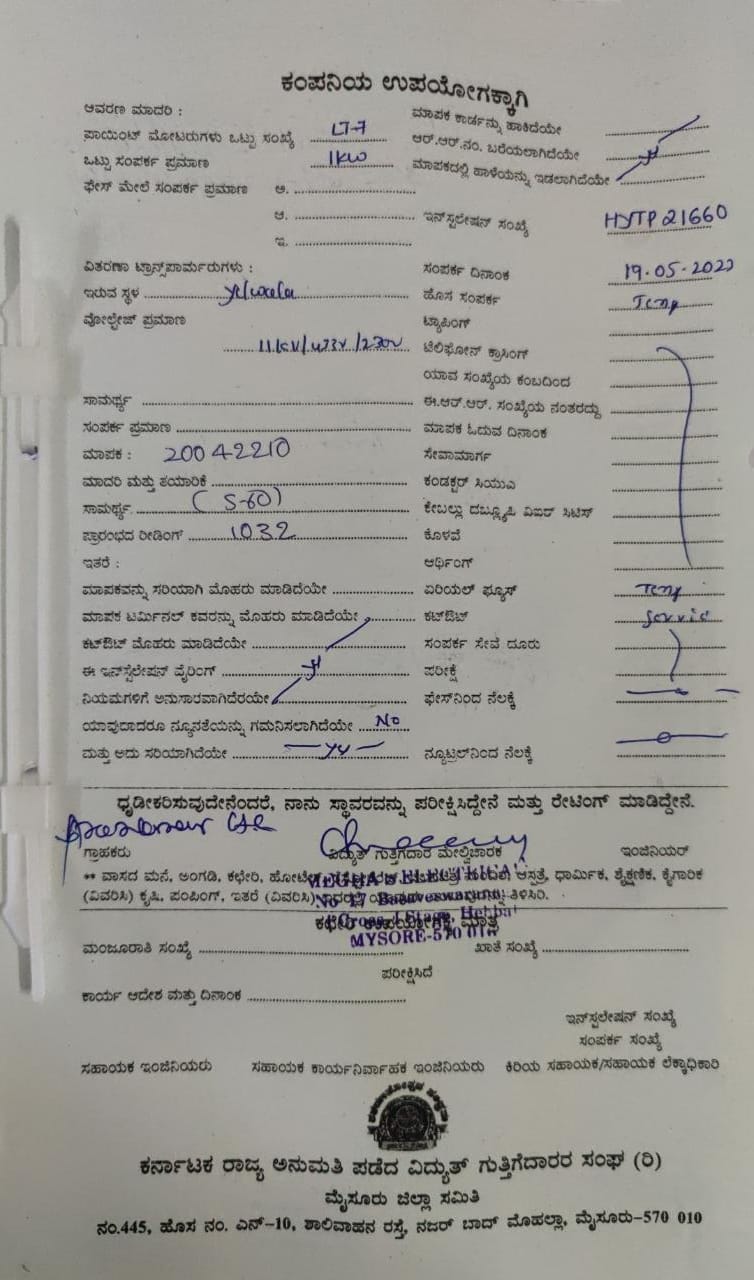 ಕಂಪನಿಯ ಉಪಯೋಗಕ್ಕಾಗಿ
ಆವರಣ ಮಾದರಿ : ಮಾಪಕ ಕಾರ್ಡನ್ನು ಹಾಕಿದೆಯೇ
ಪಾಯಿಂಟ್ ಮೋಟರುಗಳು ಒಟ್ಟು ಸಂಖ್ಯೆ LT-7 ಆರ್.ಆರ್.ನಂ. ಬರೆಯಲಾಗಿದೆಯೇ
ಒಟ್ಟು ಸಂಪರ್ಕ ಪ್ರಮಾಣ 1kw ಮಾಪಕದಲ್ಲಿ ಹಾಳೆಯನ್ನು ಇಡಲಾಗಿದೆಯೇ
ಫೇಸ್ ಮೇಲೆ ಸಂಪರ್ಕ ಪ್ರಮಾಣ ಅ.
ಆ. ಇನ್‌ಸ್ಟಲೇಷನ್ ಸಂಖ್ಯೆ HJTP21660
ಇ.
ವಿತರಣಾ ಟ್ರಾನ್ಸ್‌ಪಾರ್ಮರುಗಳು : ಸಂಪರ್ಕ ದಿನಾಂಕ 19.05.2022
ಇರುವ ಸ್ಥಳ ಹೊಸ ಸಂಪರ್ಕ Temp
ವೋಲ್ಟೇಜ್ ಪ್ರಮಾಣ ಟ್ಯಾಪಿಂಗ್
11kv/433v/230v ಟೆಲಿಫೋನ್ ಕ್ರಾಸಿಂಗ್
ಯಾವ ಸಂಖ್ಯೆಯ ಕಂಬದಿಂದ
ಸಾಮರ್ಥ್ಯ ಈ.ಆರ್.ಆರ್. ಸಂಖ್ಯೆಯ ನಂತರದ್ದು
ಸಂಪರ್ಕ ಪ್ರಮಾಣ ಮಾಪಕ ಓದುವ ದಿನಾಂಕ
ಮಾಪಕ : 20042210 ಸೇವಾಮಾರ್ಗ
ಮಾದರಿ ಮತ್ತು ತಯಾರಿಕೆ ಕಂಡಕ್ಟರ್ ಸಿಯುಎ
ಸಾಮರ್ಥ್ಯ (5-60) ಕೇಬಲ್ಲು ದಬ್ಲ್ಯೂಪಿ ವಿಐರ್ ಸಿಟಿಸ್
ಪ್ರಾರಂಭದ ರೀಡಿಂಗ್ 1032 ಕೊಳವೆ
ಇತರೆ : ಆರ್ಥಿಂಗ್
ಮಾಪಕವನ್ನು ಸರಿಯಾಗಿ ಮೊಹರು ಮಾಡಿದೆಯೇ ಏರಿಯಲ್ ಫ್ಯೂಸ್ Temp
ಮಾಪಕ ಟರ್ಮಿನಲ್ ಕವರನ್ನು ಮೊಹರು ಮಾಡಿದೆಯೇ ಕಟ್‌ಔಟ್ Service
ಕಟ್‌ಔಟ್ ಮೊಹರು ಮಾಡಿದೆಯೇ ಸಂಪರ್ಕ ಸೇವೆ ದೂರು
ಈ ಇನ್‌ಸ್ಟೆಲೇಷನ್ ವೈರಿಂಗ್ ಪರೀಕ್ಷೆ
ನಿಯಮಗಳಿಗೆ ಅನುಸಾರವಾಗಿದೆರಯೇ ಫೇಸ್‌ನಿಂದ ನೆಲಕ್ಕೆ
ಯಾವುದಾದರೂ ನ್ಯೂನತೆಯನ್ನು ಗಮನಿಸಲಾಗಿದೆಯೇ No
ಮತ್ತು ಅದು ಸರಿಯಾಗಿದೆಯೇ ನ್ಯೂಟ್ರಲ್‌ನಿಂದ ನೆಲಕ್ಕೆ
ಧೃಡೀಕರಿಸುವುದೇನೆಂದರೆ, ನಾನು ಸ್ಥಾವರವನ್ನು ಪರೀಕ್ಷಿಸಿದ್ದೇನೆ ಮತ್ತು ರೇಟಿಂಗ್ ಮಾಡಿದ್ದೇನೆ.
ಗ್ರಾಹಕರು ವಿದ್ಯುತ್ ಗುತ್ತಿಗೆದಾರ ಮೇಲ್ವಿಚಾರಕ ಇಂಜಿನಿಯರ್
** ವಾಸದ ಮನೆ, ಅಂಗಡಿ, ಕಛೇರಿ, ಆಸ್ಪತ್ರೆ, ಧಾರ್ಮಿಕ, ಶೈಕ್ಷಣಿಕ, ಕೈಗಾರಿಕೆ
(ವಿವರಿಸಿ) ಕೃಷಿ, ಪಂಪಿಂಗ್, ಇತರೆ (ವಿವರಿಸಿ) ತಿಳಿಸಿರಿ.
ಕಛೇರಿ ಉಪಯೋಗಕ್ಕೆ ಮಾತ್ರ
MYSORE-570
ಮಂಜೂರಾತಿ ಸಂಖ್ಯೆ ಖಾತೆ ಸಂಖ್ಯೆ
ಪರೀಕ್ಷಿಸಿದೆ
ಕಾರ್ಯ ಆದೇಶ ಮತ್ತು ದಿನಾಂಕ
ಇನ್‌ಸ್ಟಲೇಷನ್ ಸಂಖ್ಯೆ
ಸಂಪರ್ಕ ಸಂಖ್ಯೆ
ಸಹಾಯಕ ಇಂಜಿನಿಯರು ಸಹಾಯಕ ಕಾರ್ಯನಿರ್ವಾಹಕ ಇಂಜಿನಿಯರು ಕಿರಿಯ ಸಹಾಯಕ/ಸಹಾಯಕ ಲೆಕ್ಕಾಧಿಕಾರಿ
ಕರ್ನಾಟಕ ರಾಜ್ಯ ಅನುಮತಿ ಪಡೆದ ವಿದ್ಯುತ್ ಗುತ್ತಿಗೆದಾರರ ಸಂಘ (ರಿ)
ಮೈಸೂರು ಜಿಲ್ಲಾ ಸಮಿತಿ
ನಂ.445, ಹೊಸ ನಂ. ಎನ್-10, ಶಾಲಿವಾಹನ ರಸ್ತೆ, ನಜರ್ ಬಾದ್ ಮೊಹಲ್ಲಾ, ಮೈಸೂರು-570 010